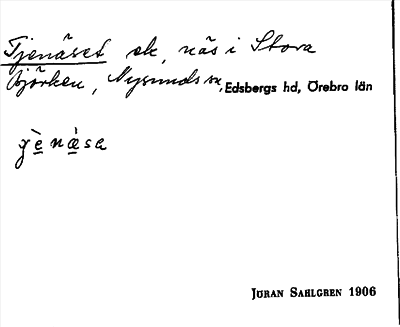 Tjenäset ek, näs i Stora
Björken, Nysunds sn, Edsbergs hd, Örebro län
gè̱næ̱̀sa
JÖRAN SAHLGREN 1906